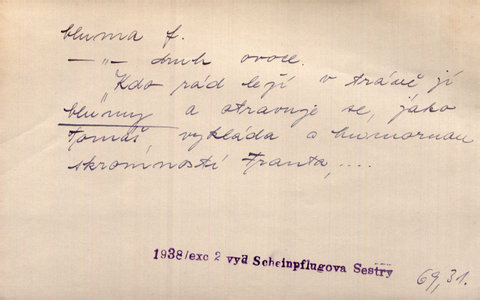 bluma f.
—"— druh ovoce.
„Kdo rád leží v trávě jí
blumy a otravuje se, jako
Tomáš vykládá o humornou
skromností Franta, ....
1938/exc 2 vyd Scheinpflugova Sestry
69,31.